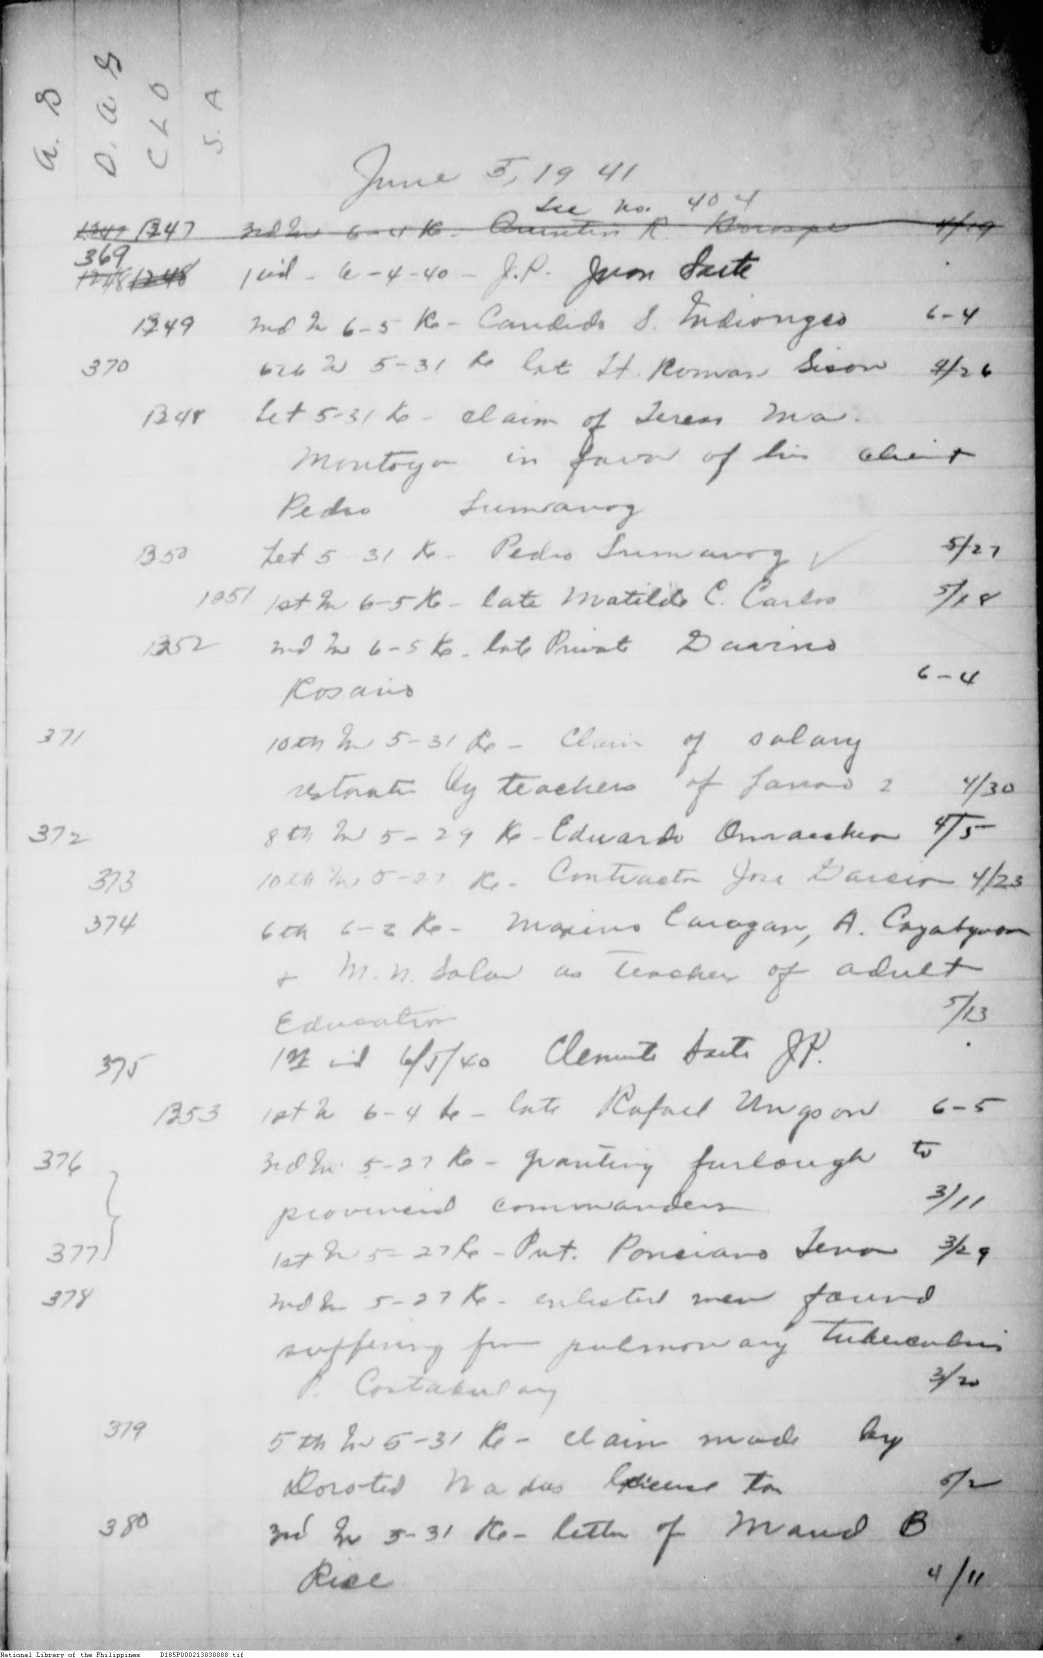 A. S
D. A. S
C L D
S. A
June 5, 1941
See no. 404
1247 1247 3rd In 6-4 Re- Quintin R. 4/19
369
1248 1248 1 ind - 6-4-40 - J.P. Juan Saite
1249 2nd In 6-5 Re- Candido S. Indiongco 6-4
370 6th In 5-31 Re late Lt. Roman Sison 4/26
1348 Let 5-31 Re- claim of Teresa Ma.
Montoya in favor of his client
Pedro Sumavog
1350 Let 5-31 Re- Pedro Sumavog 5/27
1051 1st In 6-5 Re- late Matilde C. Carlos 5/18
1352 2nd In 6-5 Re- late Private Gavino
Rosario 6-4
371 10th In 5-31 Re- Claim of salary
by teachers of Lanao 2 4/30
372 8th In 5-29 Re- Eduardo 4/5
373 10th In 5-27 Re- Contractor Jose Garcia 4/23
374 6th 6-2 Re- Maximo Caragan, A. Cayabyan
+ M. N. Salar as teacher of adult
Education 5/13
375 1st ind 6/5/40 Clemente Saite J.P.
1353 1st In 6-4 Re- late Rafael Ungson 6-5
376 3rd In 5-27 Re- granting furlough to
provincial commanders 3/11
377 1st In 5-27 Re- Pvt. Ponciano 3/29
378 2nd In 5-27 Re- enlisted men found
suffering from pulmonary tuberculosis
P. Costabulary 3/20
379 5th In 5-31 Re- claim made by
Doroteo for 5/2
380 3rd In 5-31 Re- letter of Maud B
Rice 4/11
National Library of the Philippines D185P000213838888.tif